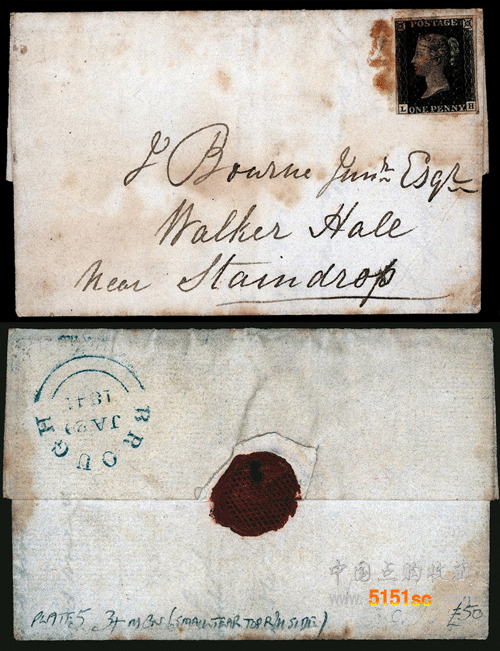 POSTAGE
L ONE PENNY H
J Bourne Junr. Esqr
Walker Hall
near Staindrop
BROUGH
JA
1841
中国点购收藏
www.5151sc
PLATE 5 3+ MGNS (SMALL TEAR TOP R INSIDE)
£50